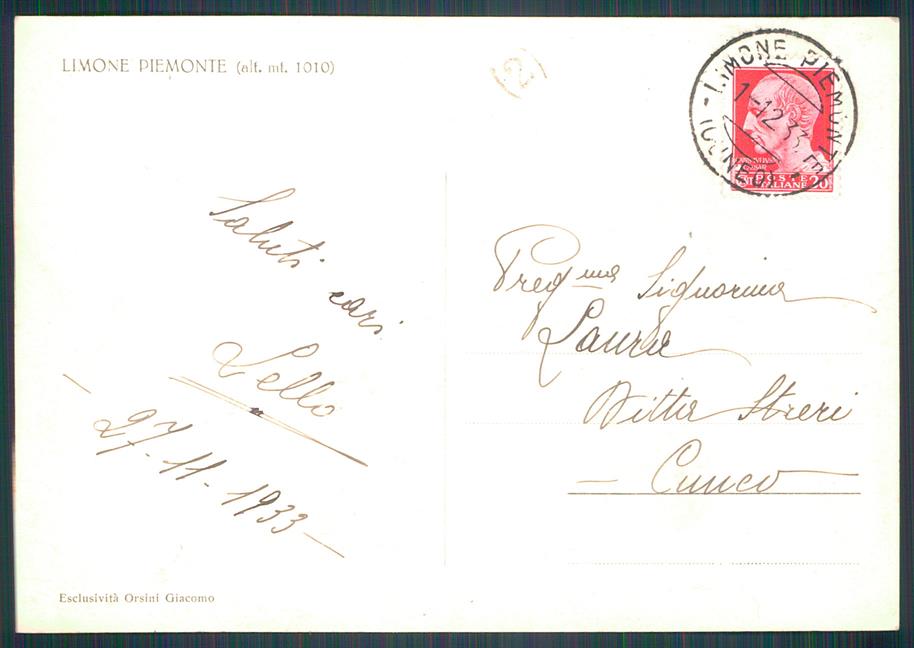 LIMONE PIEMONTE (alt. mt. 1010)
(2)
LIMONE PIEMONTE
1-12.33
(CUNEO)
POSTE
ITALIANE 20
Saluti
cari
Lello
- 27-11-1933 -
Preg.ma Signorina
Laura
Ditta Streri
- Cuneo -
Esclusività Orsini Giacomo